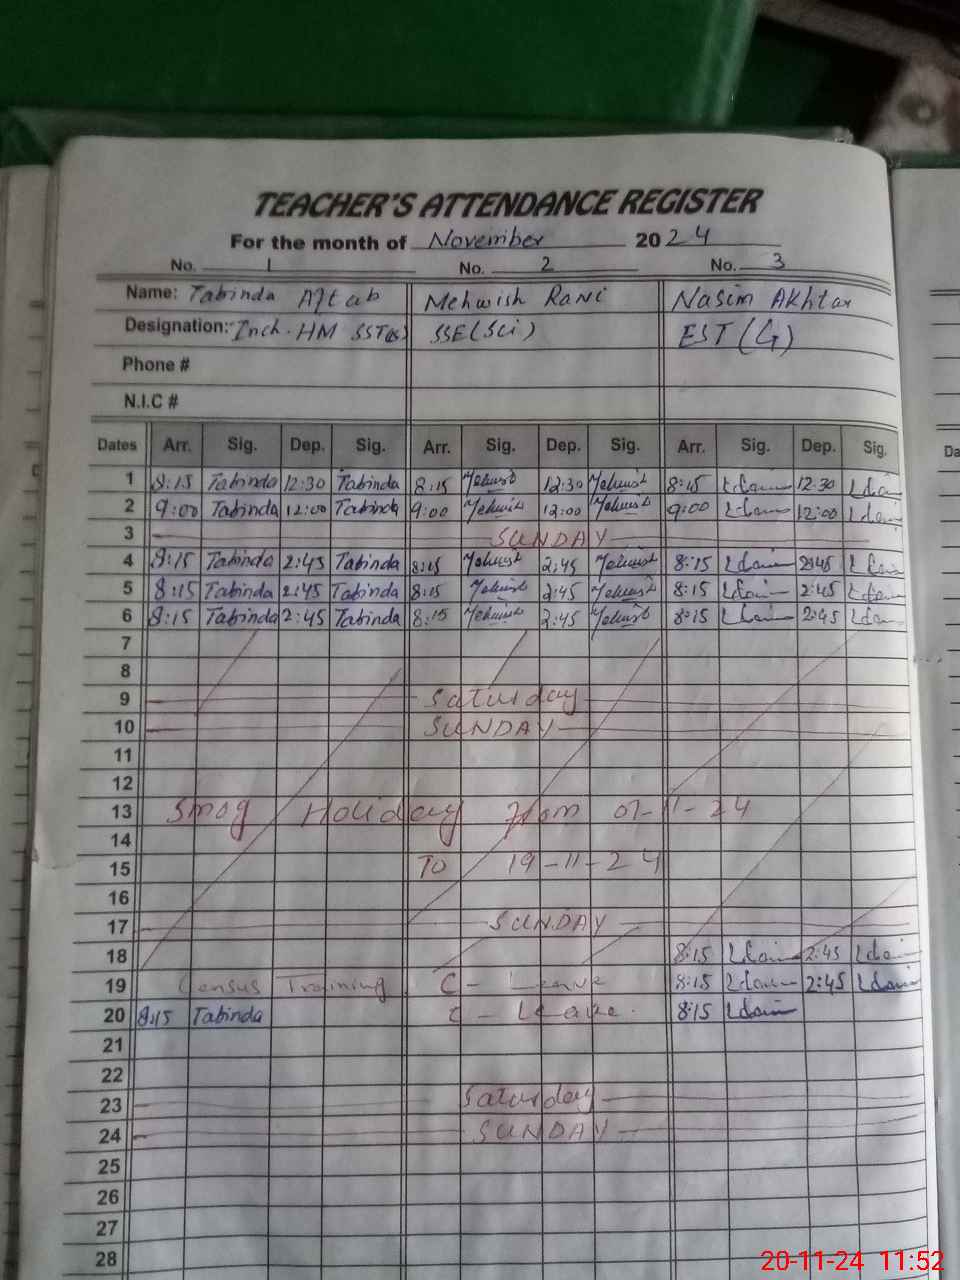 TEACHER'S ATTENDANCE REGISTER
For the month of November 2024
No. 1 No. 2 No. 3
Name: Tabinda Aftab Mehwish Rani Nasim Akhtar
Designation: Inch. HM SST(s) SSE(Sci) EST(G)
Phone #
N.I.C #
Dates Arr. Sig. Dep. Sig. Arr. Sig. Dep. Sig. Arr. Sig. Dep. Sig.
1 8:15 Tabinda 12:30 Tabinda 8:15 Mehwish 12:30 Mehwish 8:15 12:30
2 9:00 Tabinda 12:00 Tabinda 9:00 Mehwish 12:00 Mehwish 9:00 12:00
3 SUNDAY
4 8:15 Tabinda 2:45 Tabinda 8:15 Mehwish 2:45 Mehwish 8:15 2:45
5 8:15 Tabinda 2:45 Tabinda 8:15 Mehwish 2:45 Mehwish 8:15 2:45
6 8:15 Tabinda 2:45 Tabinda 8:15 Mehwish 2:45 Mehwish 8:15 2:45
7
8
9 Saturday
10 SUNDAY
11
12
13 Smog Holiday from 07-11-24
14
15 To 19-11-24
16
17 SUNDAY
18 8:15 2:45
19 Census Training C- Leave 8:15 2:45
20 8:15 Tabinda C- Leave. 8:15
21
22
23 Saturday
24 SUNDAY
25
26
27
28
Da
20-11-24 11:52